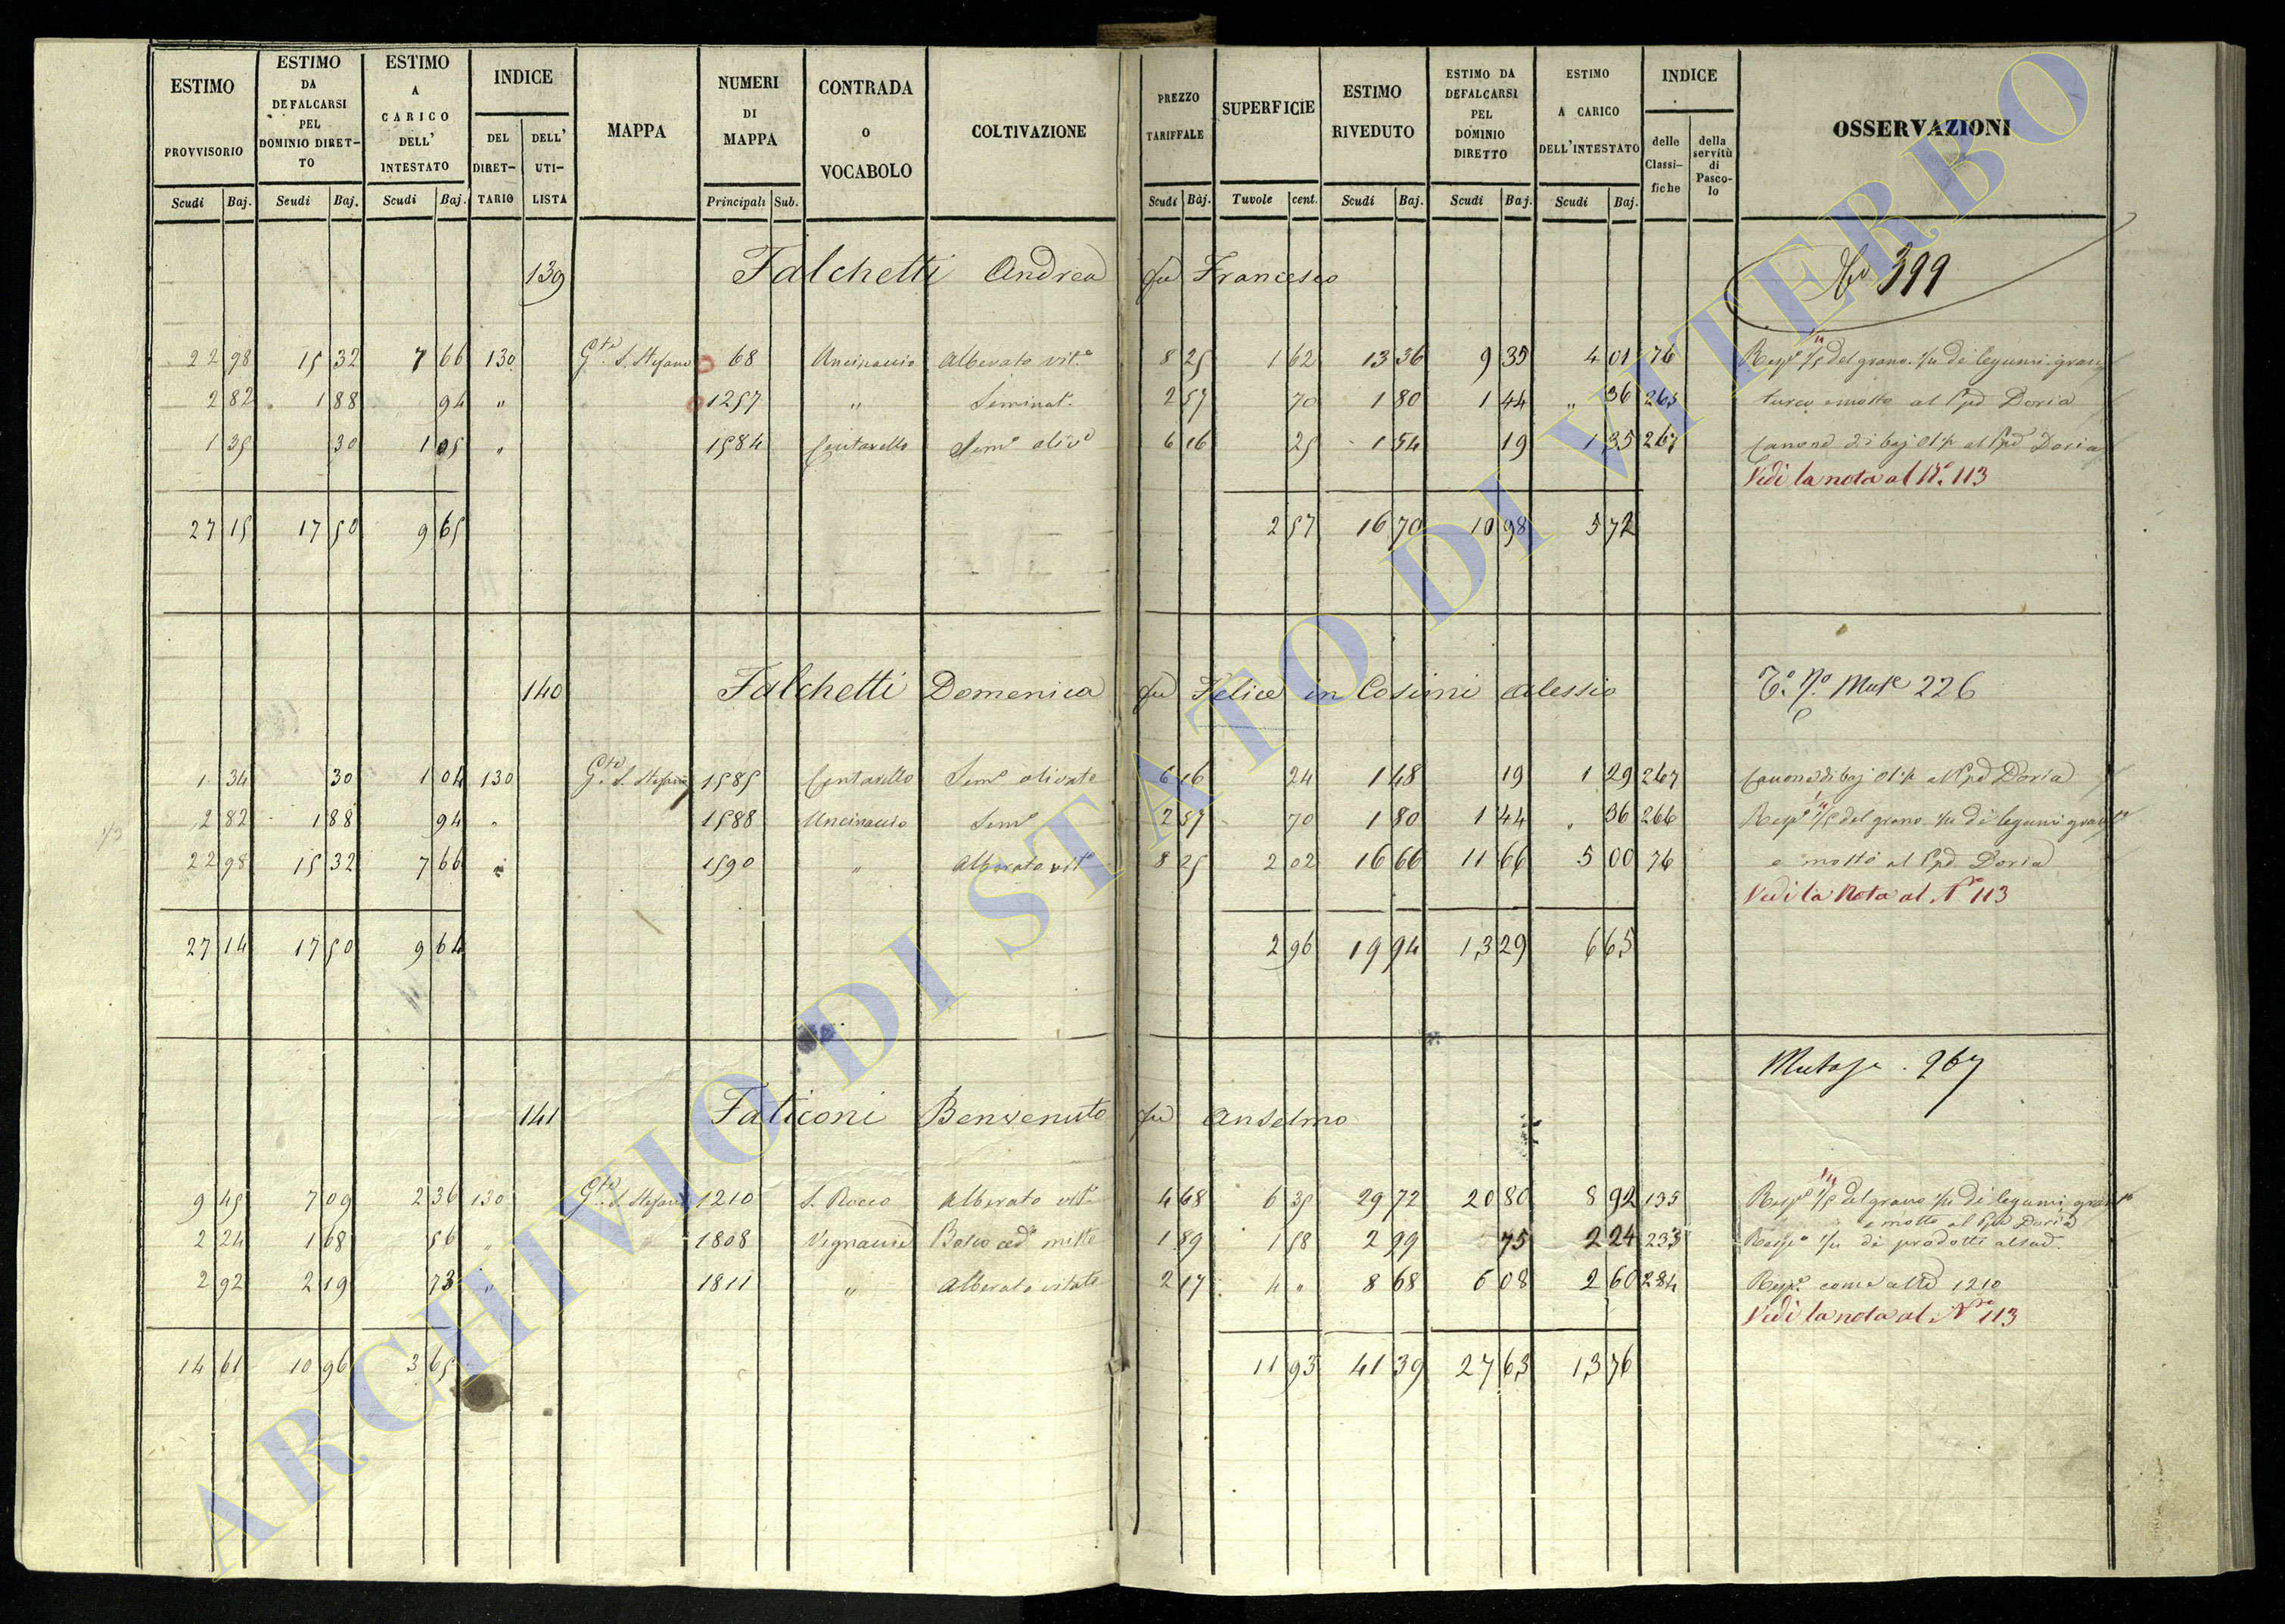 ESTIMO PROVVISORIO Scudi Baj.
ESTIMO DA DEFALCARSI PEL DOMINIO DIRETTO Scudi Baj.
ESTIMO A CARICO DELL' INTESTATO Scudi Baj.
INDICE DEL DIRETTARIO DELL' UTILISTA
MAPPA
NUMERI DI MAPPA Principali Sub.
CONTRADA O VOCABOLO
COLTIVAZIONE
PREZZO TARIFFALE Scudi Baj.
SUPERFICIE Tavole cent.
ESTIMO RIVEDUTO Scudi Baj.
ESTIMO DA DEFALCARSI PEL DOMINIO DIRETTO Scudi Baj.
ESTIMO A CARICO DELL'INTESTATO Scudi Baj.
INDICE delle Classifiche della servitù di Pascolo
OSSERVAZIONI
139 Falchetti Andrea fu Francesco 399
22 98 15 32 7 66 130 Gte S. Stefano 68 Uncinaccio Alberato vito 8 25 1 62 13 36 9 35 4 01 76 Rispa 1/5 del grano 1/4 di legumi gran
2 82 1 88 94 " 1257 " Seminat. 2 57 70 1 80 1 44 " 36 265 turco e mosto al Ppe Doria
1 35 30 1 05 " 1584 Centarello Semo olivo 6 16 25 1 54 19 1 35 267 Canone di baj al Ppe Doria
Vedi la nota al No. 113
27 15 17 50 9 65 2 57 16 70 10 98 5 72
140 Falchetti Domenica fu Felice in Cosimi Alessio 226
1 34 30 1 04 130 Gte S. Stefano 1585 Centarello Semo olivato 6 16 24 1 48 19 1 29 267 Canone di baj al Ppe Doria
2 82 1 88 94 " 1588 Uncinaccio Semo 2 57 70 1 80 1 44 " 36 266 Rispa 1/5 del grano 1/4 di legumi gran
22 98 15 32 7 66 " 1590 " Alberato vito 8 25 2 02 16 66 11 66 5 00 76 e mosto al Ppe Doria
Vedi la Nota al No 113
27 14 17 50 9 64 2 96 19 94 13 29 6 65
Mutaze. 267
141 Faticoni Benvenuto fu Anselmo
9 45 7 09 2 36 130 Gte S. Stefano 1210 S. Rocco Alberato vito 4 68 6 35 29 72 20 80 8 92 135 Rispa 1/5 del grano 1/4 di legumi gran
e mosto al Ppe Doria
2 24 1 68 56 " 1808 Vignaccie Bosco cedo misto 1 89 1 58 2 99 75 2 24 233 Rispa 1/4 di prodotti al sud.
2 92 2 19 73 " 1811 " Alberato vitato 2 17 4 " 8 68 6 08 2 60 284 Rispa come al No 1210
Vedi la nota al No 113
14 61 10 96 3 65 11 93 41 39 27 63 13 76
ARCHIVIO DI STATO DI VITERBO